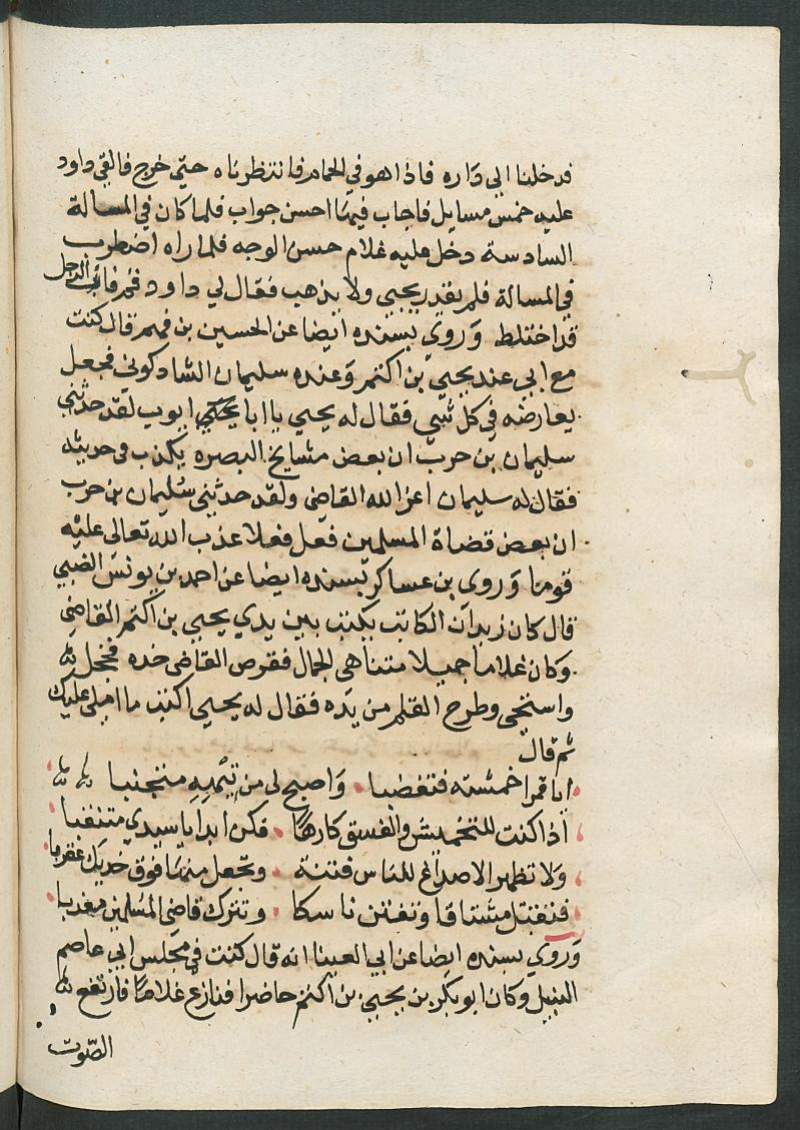 فدخلنا الى داره فاذا هو في الحمام فانتظرناه حتى خرج فالقى داود
عليه خمس مسايل فاجاب فيها احسن جواب فلما كان في المسالة
السادسة دخل عليه غلام حسن الوجه فلما راه اضطرب
في المسالة فلم يقدر يجيي ولا يذهب فقال لي داود قم فان الرجل
قد اختلط وروى بسنده ايضا عن الحسين بن فهم قال كنت
مع ابي عند يحيى بن اكثم وعنده سليمان الشادكونى فجعل
يعارضه في كل شي فقال له يحيى يا ابا ايوب لقد حدثني
سليمان بن حرب ان بعض مشايخ البصره يكذب في حديثه
فقال له سليمان اعز الله القاضي ولقد حدثني سليمان بن حرب
ان بعض قضاة المسلمين فعل فعلا عذب الله تعالى عليه
قوما وروى بن عساكر بسنده ايضا عن احمد بن يونس الضبي
قال كان زيدان الكاتب يكتب بين يدي يحيى بن اكثم القاضي
وكان غلاما جميلا متناهي الجمال فقرص القاضي خده فخجل
واستحى وطرح القلم من يده فقال له يحيى اكتب ما املي عليك
ثم قال
ايا قمرا خمشته فتغضبا واصبح لي من تيهه متجنبا
اذا كنت للتخميش والعشق كارها فكن ابدا يا سيدي متنقبا
ولا تظهر الاصداغ للناس فتنة وتجعل منها فوق خديك عقربا
فتقتل مشتاقا وتفتن ناسكا وتترك قاضي المسلمين معذبا
وروي بسنده ايضا عن ابي العينا انه قال كنت في مجلس ابي عاصم
النبيل وكان ابو بكر بن يحيى بن اكثم حاضرا فنازع غلاما فارتفع
الصوت